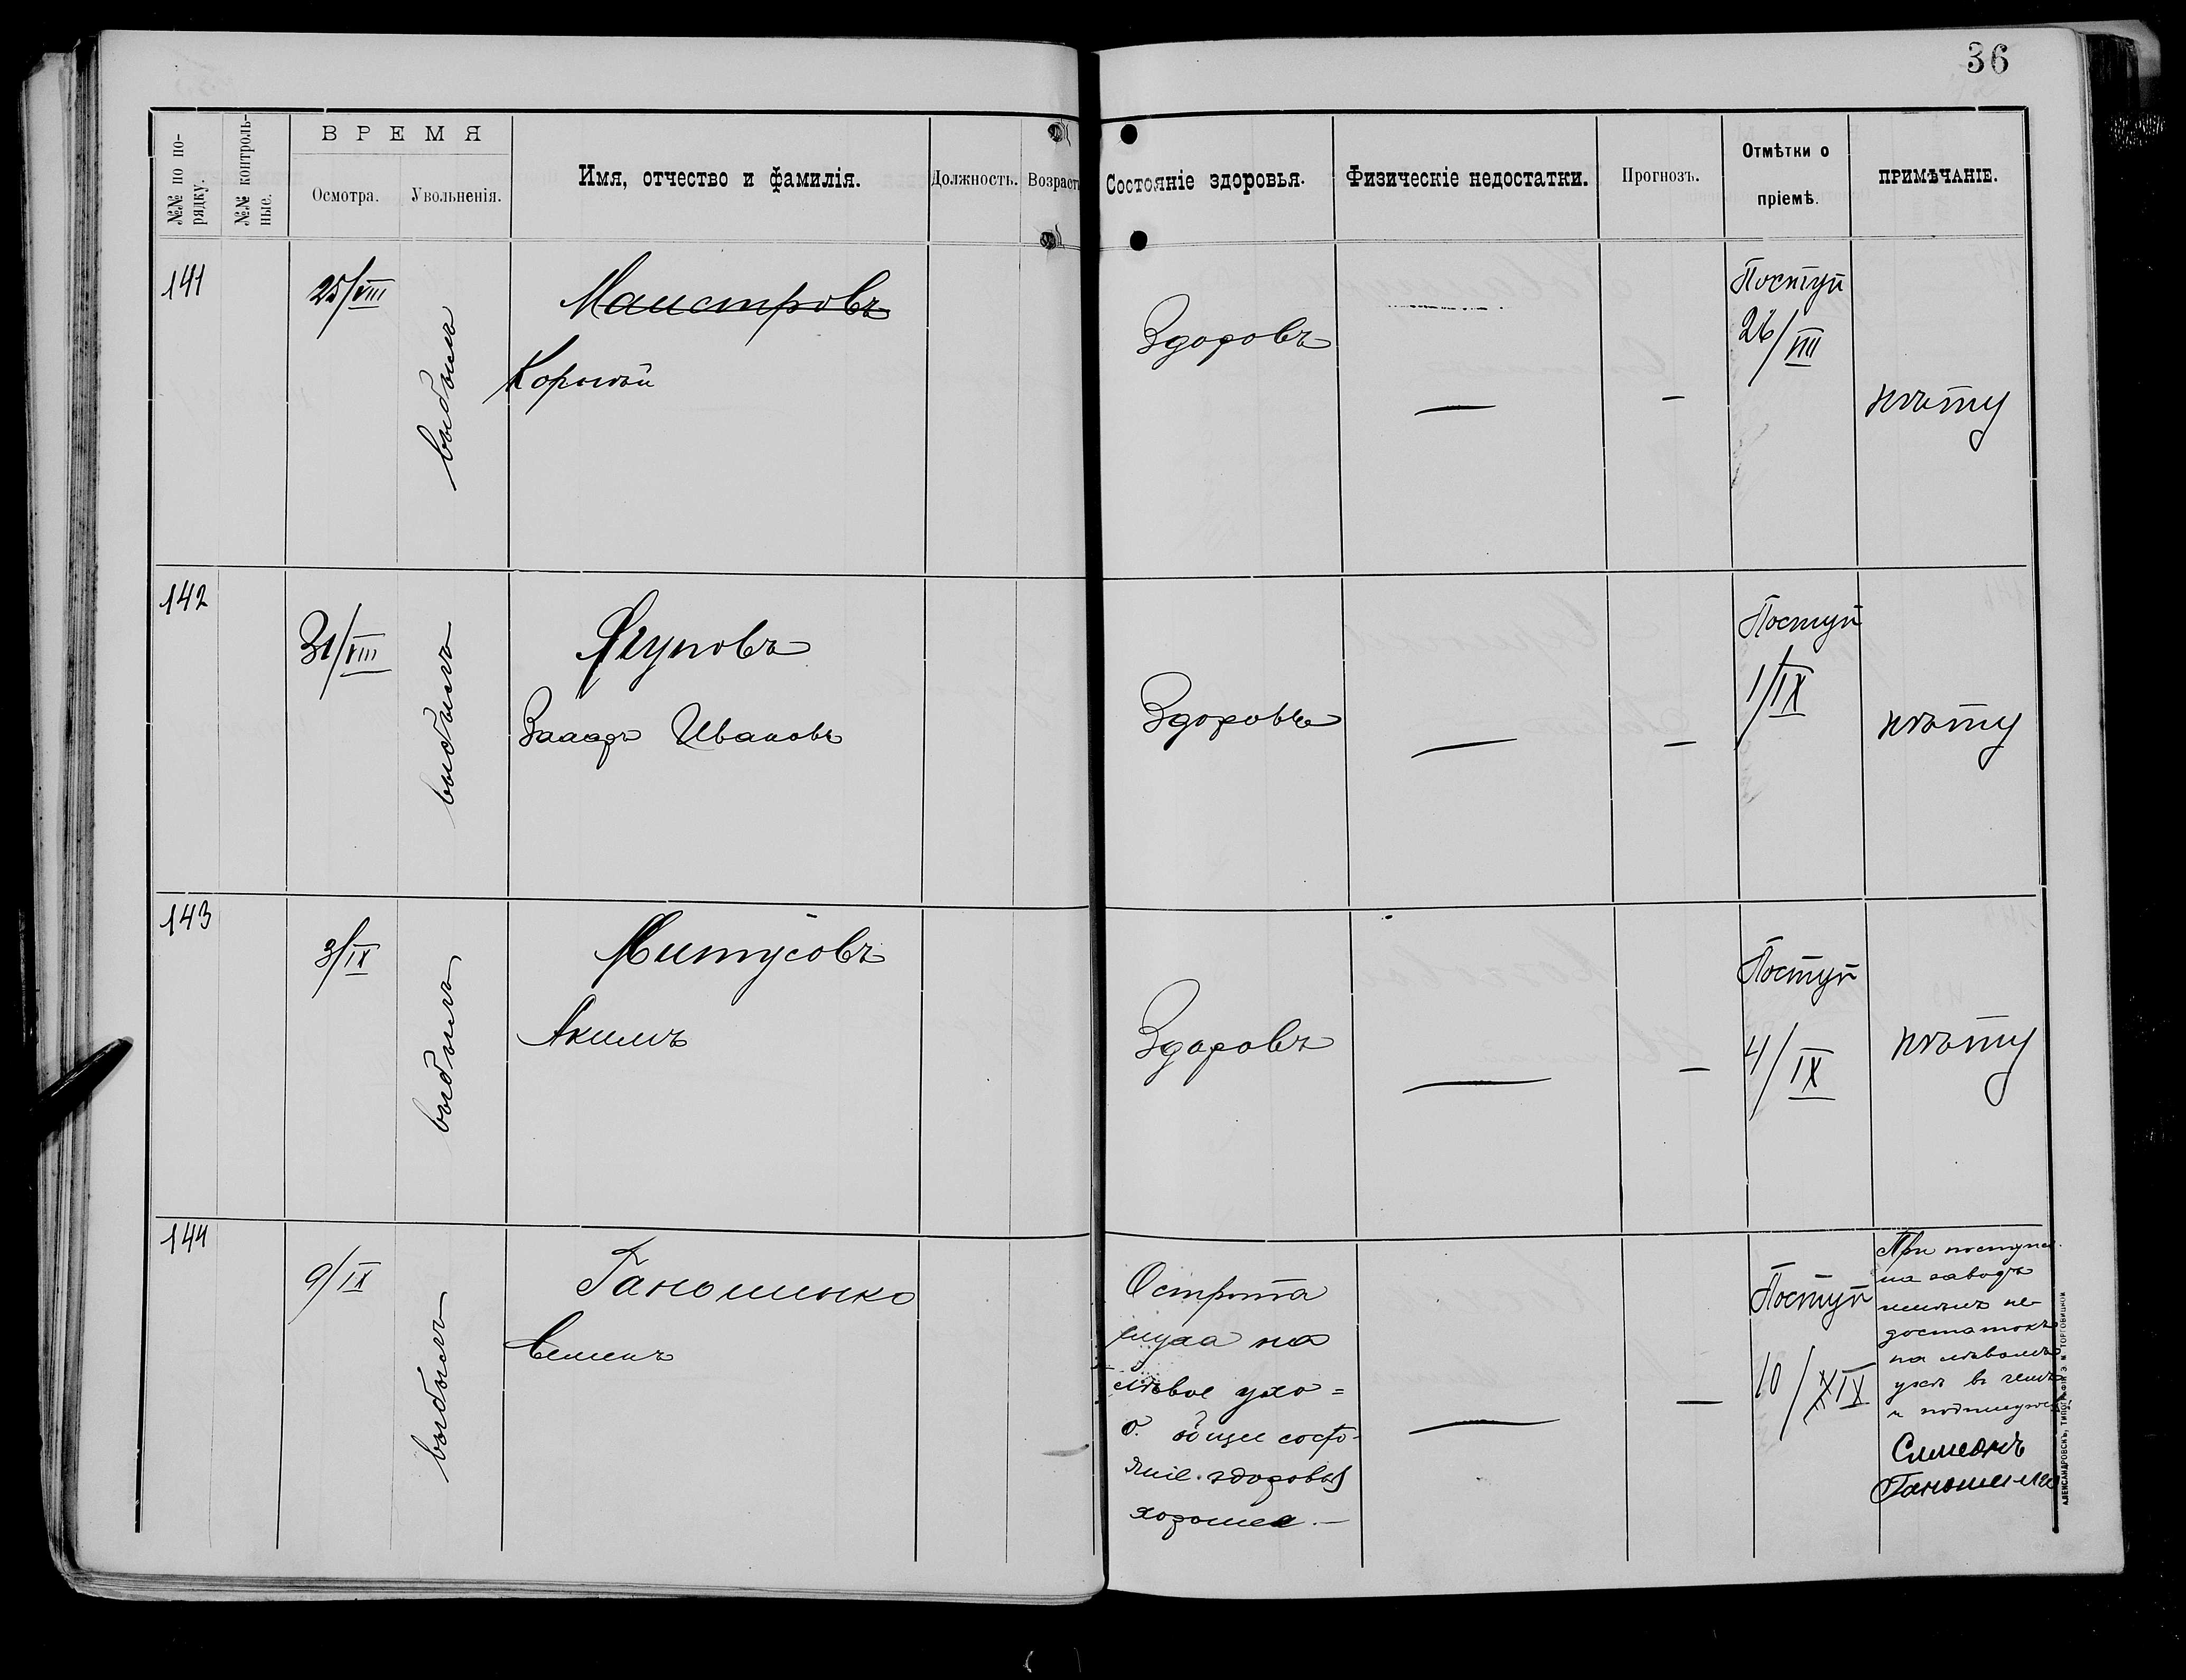 36
№№ по по-
рядку.
№№ контроль-
ные.
ВРЕМЯ
Осмотра.
Увольненія.
Имя, отчество и фамилія.
Должность.
Возрастъ
Состояніе здоровья.
Физическіе недостатки.
Прогнозъ.
Отмѣтки о
пріемѣ.
ПРИМѢЧАНІЕ.
141
25/VIII
выбылъ
Маистровъ
Корнѣй
Здоровъ
—
—
Поступ
26/VIII
нѣту
142
31/VIII
выбылъ
Ягуповъ
Захаръ Ивановъ
Здоровъ
—
—
Поступ
1/IX
нѣту
143
3/IX
выбылъ
Митусовъ
Акимъ
Здоровъ
—
—
Поступ
4/IX
нѣту
144
9/IX
выбылъ
Ганошенко
Семенъ
Острота
слуха на
лѣвое ухо =
0. общее состо-
яніе здоровья
хорошее. —
—
—
Поступ
10/XIX
При поступл.
на заводъ
имѣлъ не-
достатокъ
на лѣвомъ
ухѣ въ чемъ
и подпишусь
Симеонъ
Ганошенко
АЛЕКСАНДРОВСКЪ, ТИПОГРАФІЯ Э. М. ТОРГОВИЦКОЙ